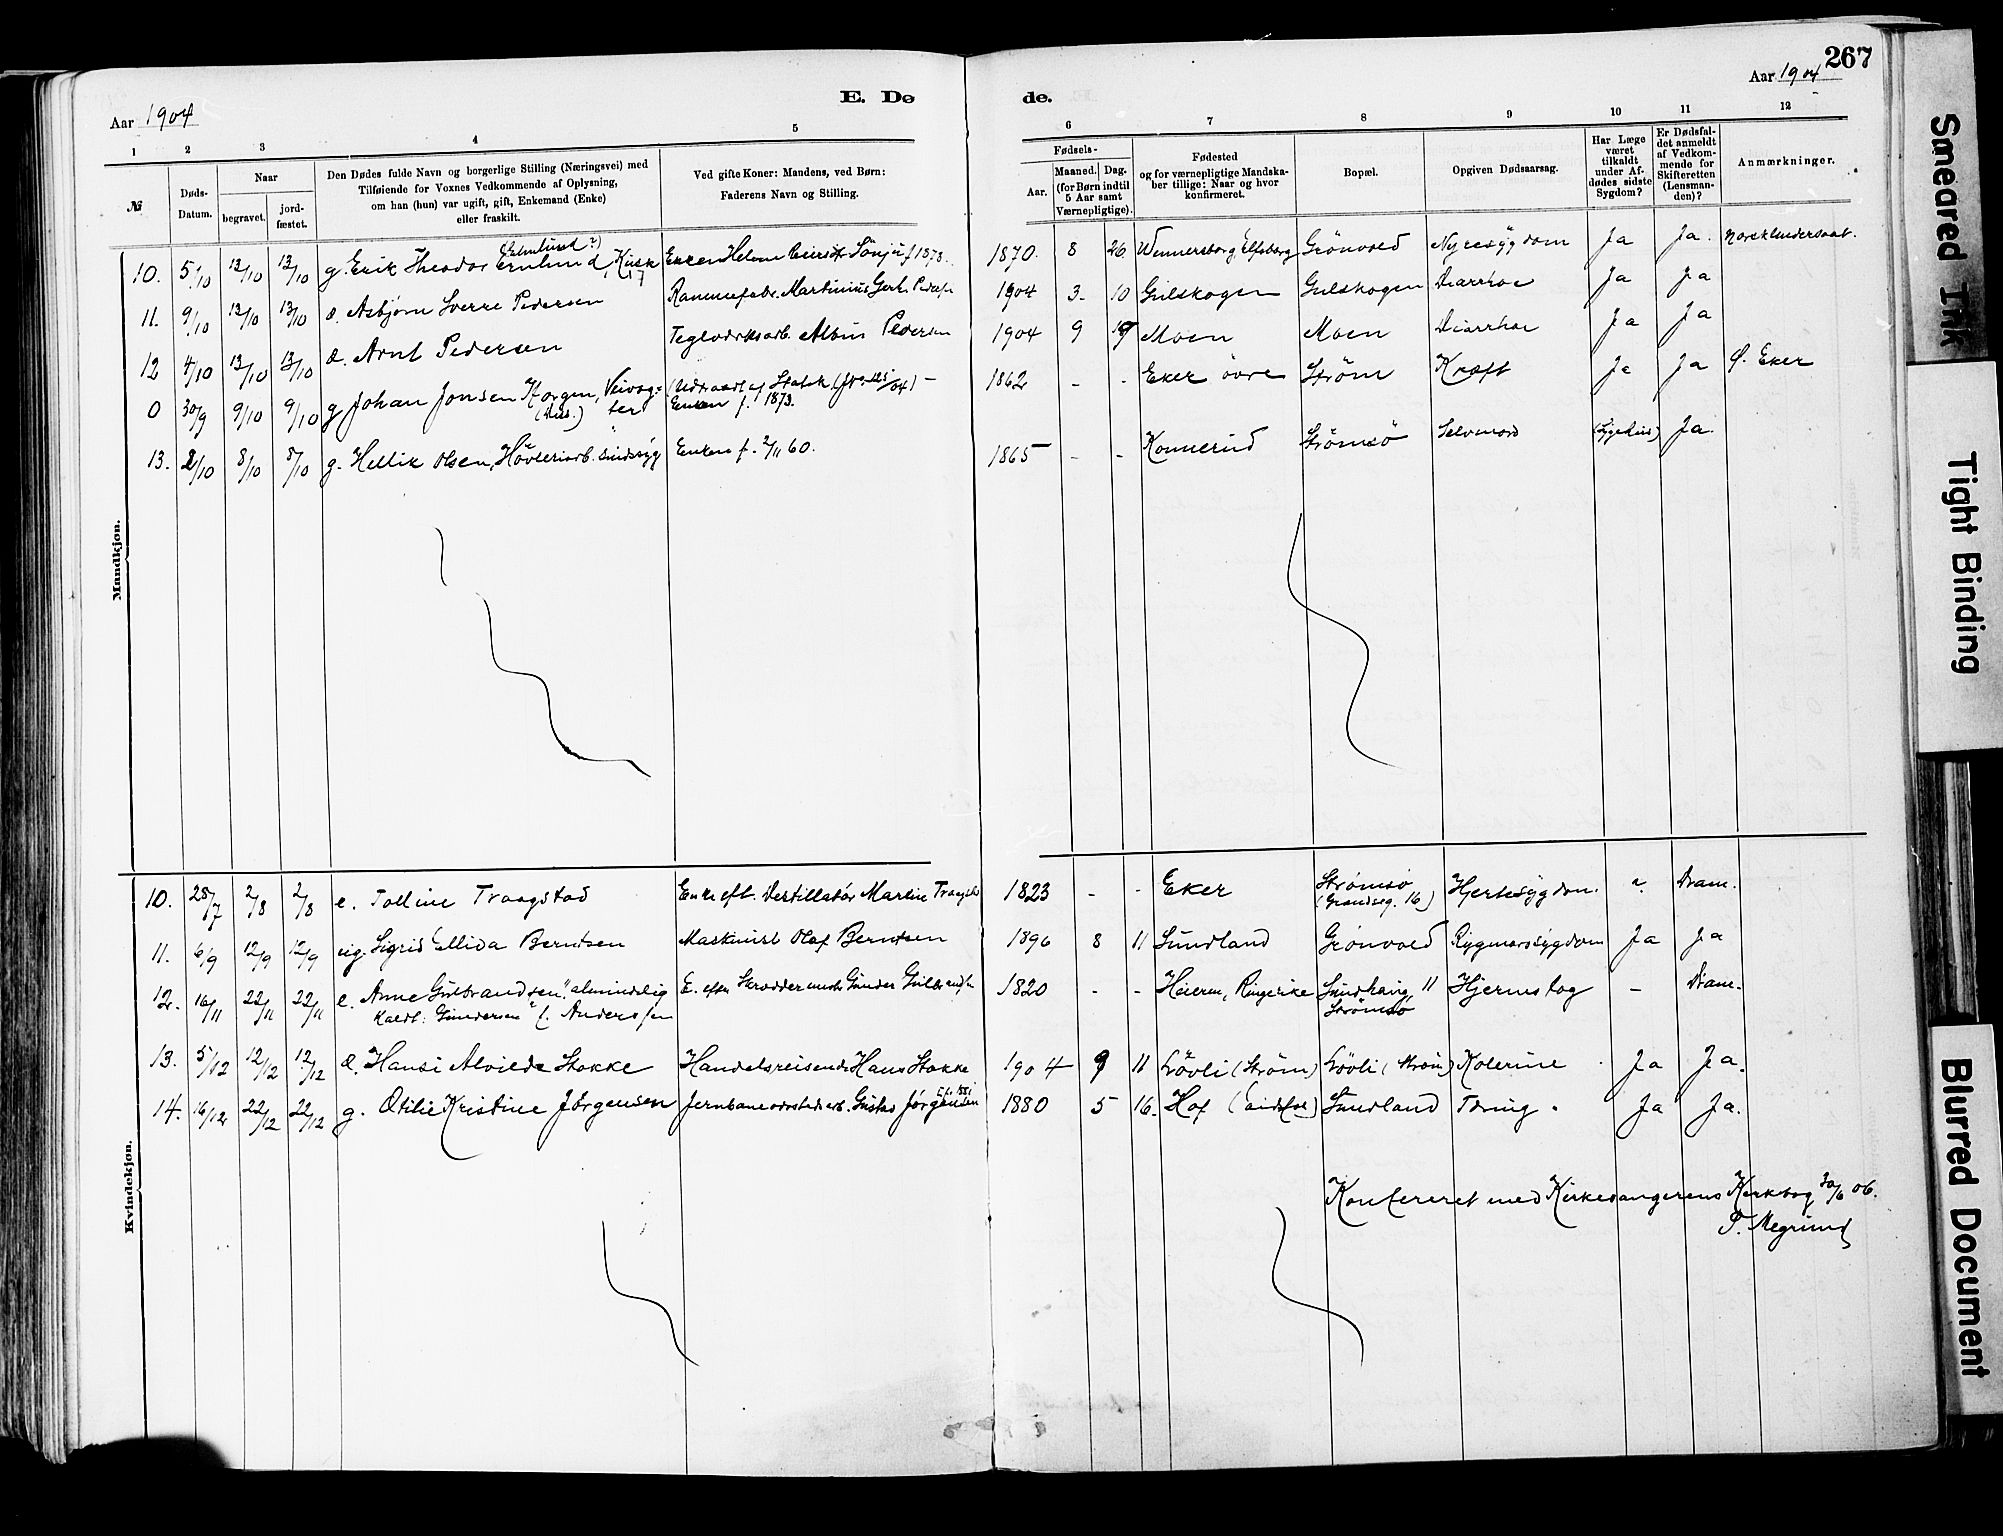 267
Aar 1904
E. Dø
de.
Aar 1904
1 2 3 4 5 6 7 8 9 10 11 12
№
Døds-
Datum.
Naar
begravet.
jord-
fæstet.
Den Dødes fulde Navn og borgerlige Stilling (Næringsvei) med
Tilføiende for Voxnes Vedkommende af Oplysning,
om han (hun) var ugift, gift, Enkemand (Enke)
eller fraskilt.
Ved gifte Koner: Mandens, ved Børn:
Faderens Navn og Stilling.
Fødsels-
Aar.
Maaned. Dag.
(for Børn indtil
5 Aar samt
Værnepligtige).
Fødested
og for værnepligtige Mandska-
ber tillige: Naar og hvor
konfirmeret.
Bopæl.
Opgiven Dødsaarsag.
Har Læge
været
tilkaldt
under Af-
dødes sidste
Sygdom?
Er Dødsfal-
det anmeldt
af Vedkom-
mende for
Skifteretten
(Lensman-
den)?
Anmærkninger.
Mandkjøn.
10. 5/10 12/10 12/10 g. Erik Theodor Ernlund, Kusk 1870. 8 26. Wennersborg, Elfsborg Grönvold Nyresygdom Ja Ja. norsk undersaat.
11. 9/10 13/10 13/10 d. Asbjørn Sverre Pedersen 1904 3. 10 Gulskogen Gulskogen Diarrhoe Ja Ja
12 4/10 13/10 13/10 d. Arnt Pedersen Teglverksarb. Albin Pedersen 1904 9 19 Moen Moen Diarrhoe Ja Ja
0 30/9 9/10 9/10 g Johan Jonsen Korgen, Veivog-
ter Enken f. 1873. 1862 - - Eker övre Ström Kræft Ja Ja Ø. Eker
13. 2/10 8/10 8/10 g. Hellik Olsen, Hövleriarb. sindssyg Enken f. 2/11 60. 1865 - - Konnerud Strömsö Selvmord (Sygehus) Ja.
Kvindekjøn.
10. 28/7 2/8 2/8 e. Tolline Traagstad Enke eft. Destillatör Martin 1823 - - Eker Strömsö
(Grandseg. 16) Hjertesygdom. Dram.
11. 6/9 12/9 12/9 ug. Sigrid Ellida Berntsen Maskinist Olaf Berntsen 1896 8 11 Sundland Grönvold Rygmarvsygdom Ja Ja
12. 16/11 22/11 22/11 e. Anne Gulbrandsen, "almindelig
kaldt: Gundersen" f. Andersen E. efter Gunder 1820 - - Ringerike Sundhaug, 11
Strömsö Hjerneslag - Dram.
13. 5/12 12/12 12/12 d. Hansi Alvilde Stokke Handelsreisende Hans Stokke 1904 9 11 Lövli (Ström) Lövli (Ström) Kolerine Ja Ja.
14. 16/12 22/12 22/12 g. Otilie Kristine Jörgensen Jernbaneverkstedarb. Gustav Jörgensen 1880 5 16. Hof Sundland Tæring. Ja Ja.
Konfereret med Kirkesangerens Kirkbog 30/6 06.
Smeared Ink
Tight Binding
Blurred Document